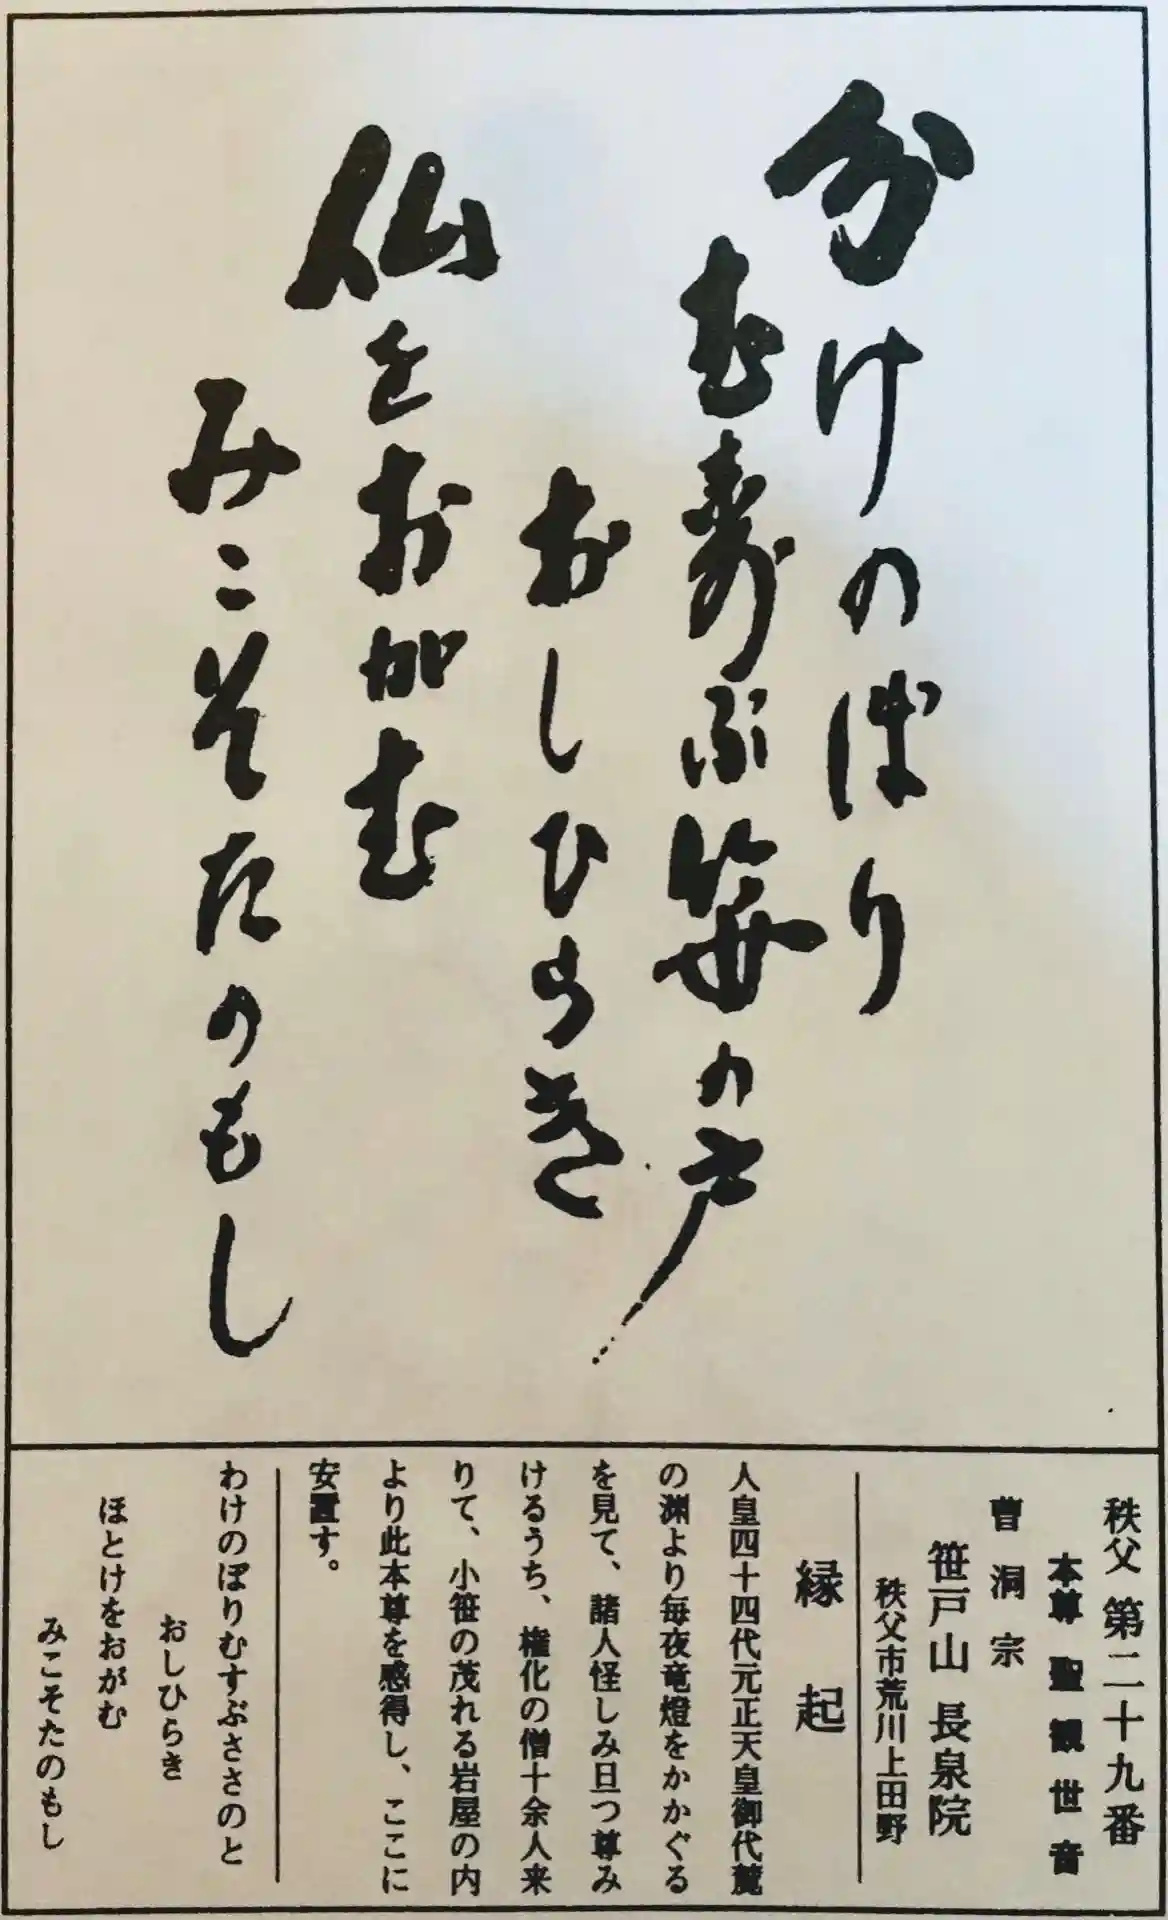 分けのぼり
む寿ぶ笹の戸
おしひらき
仏をおがむ
みこそたのもし
秩父 第二十九番
本尊 聖観世音
曹洞宗
笹戸山 長泉院
秩父市荒川上田野
縁起
人皇四十四代元正天皇御代麓
の渊より毎夜竜燈をかかぐる
を見て、諸人怪しみ且つ尊み
けるうち、権化の僧十余人来
りて、小笹の茂れる岩屋の内
より此本尊を感得し、ここに
安置す。
わけのぼりむすぶささのと
おしひらき
ほとけをおがむ
みこそたのもし